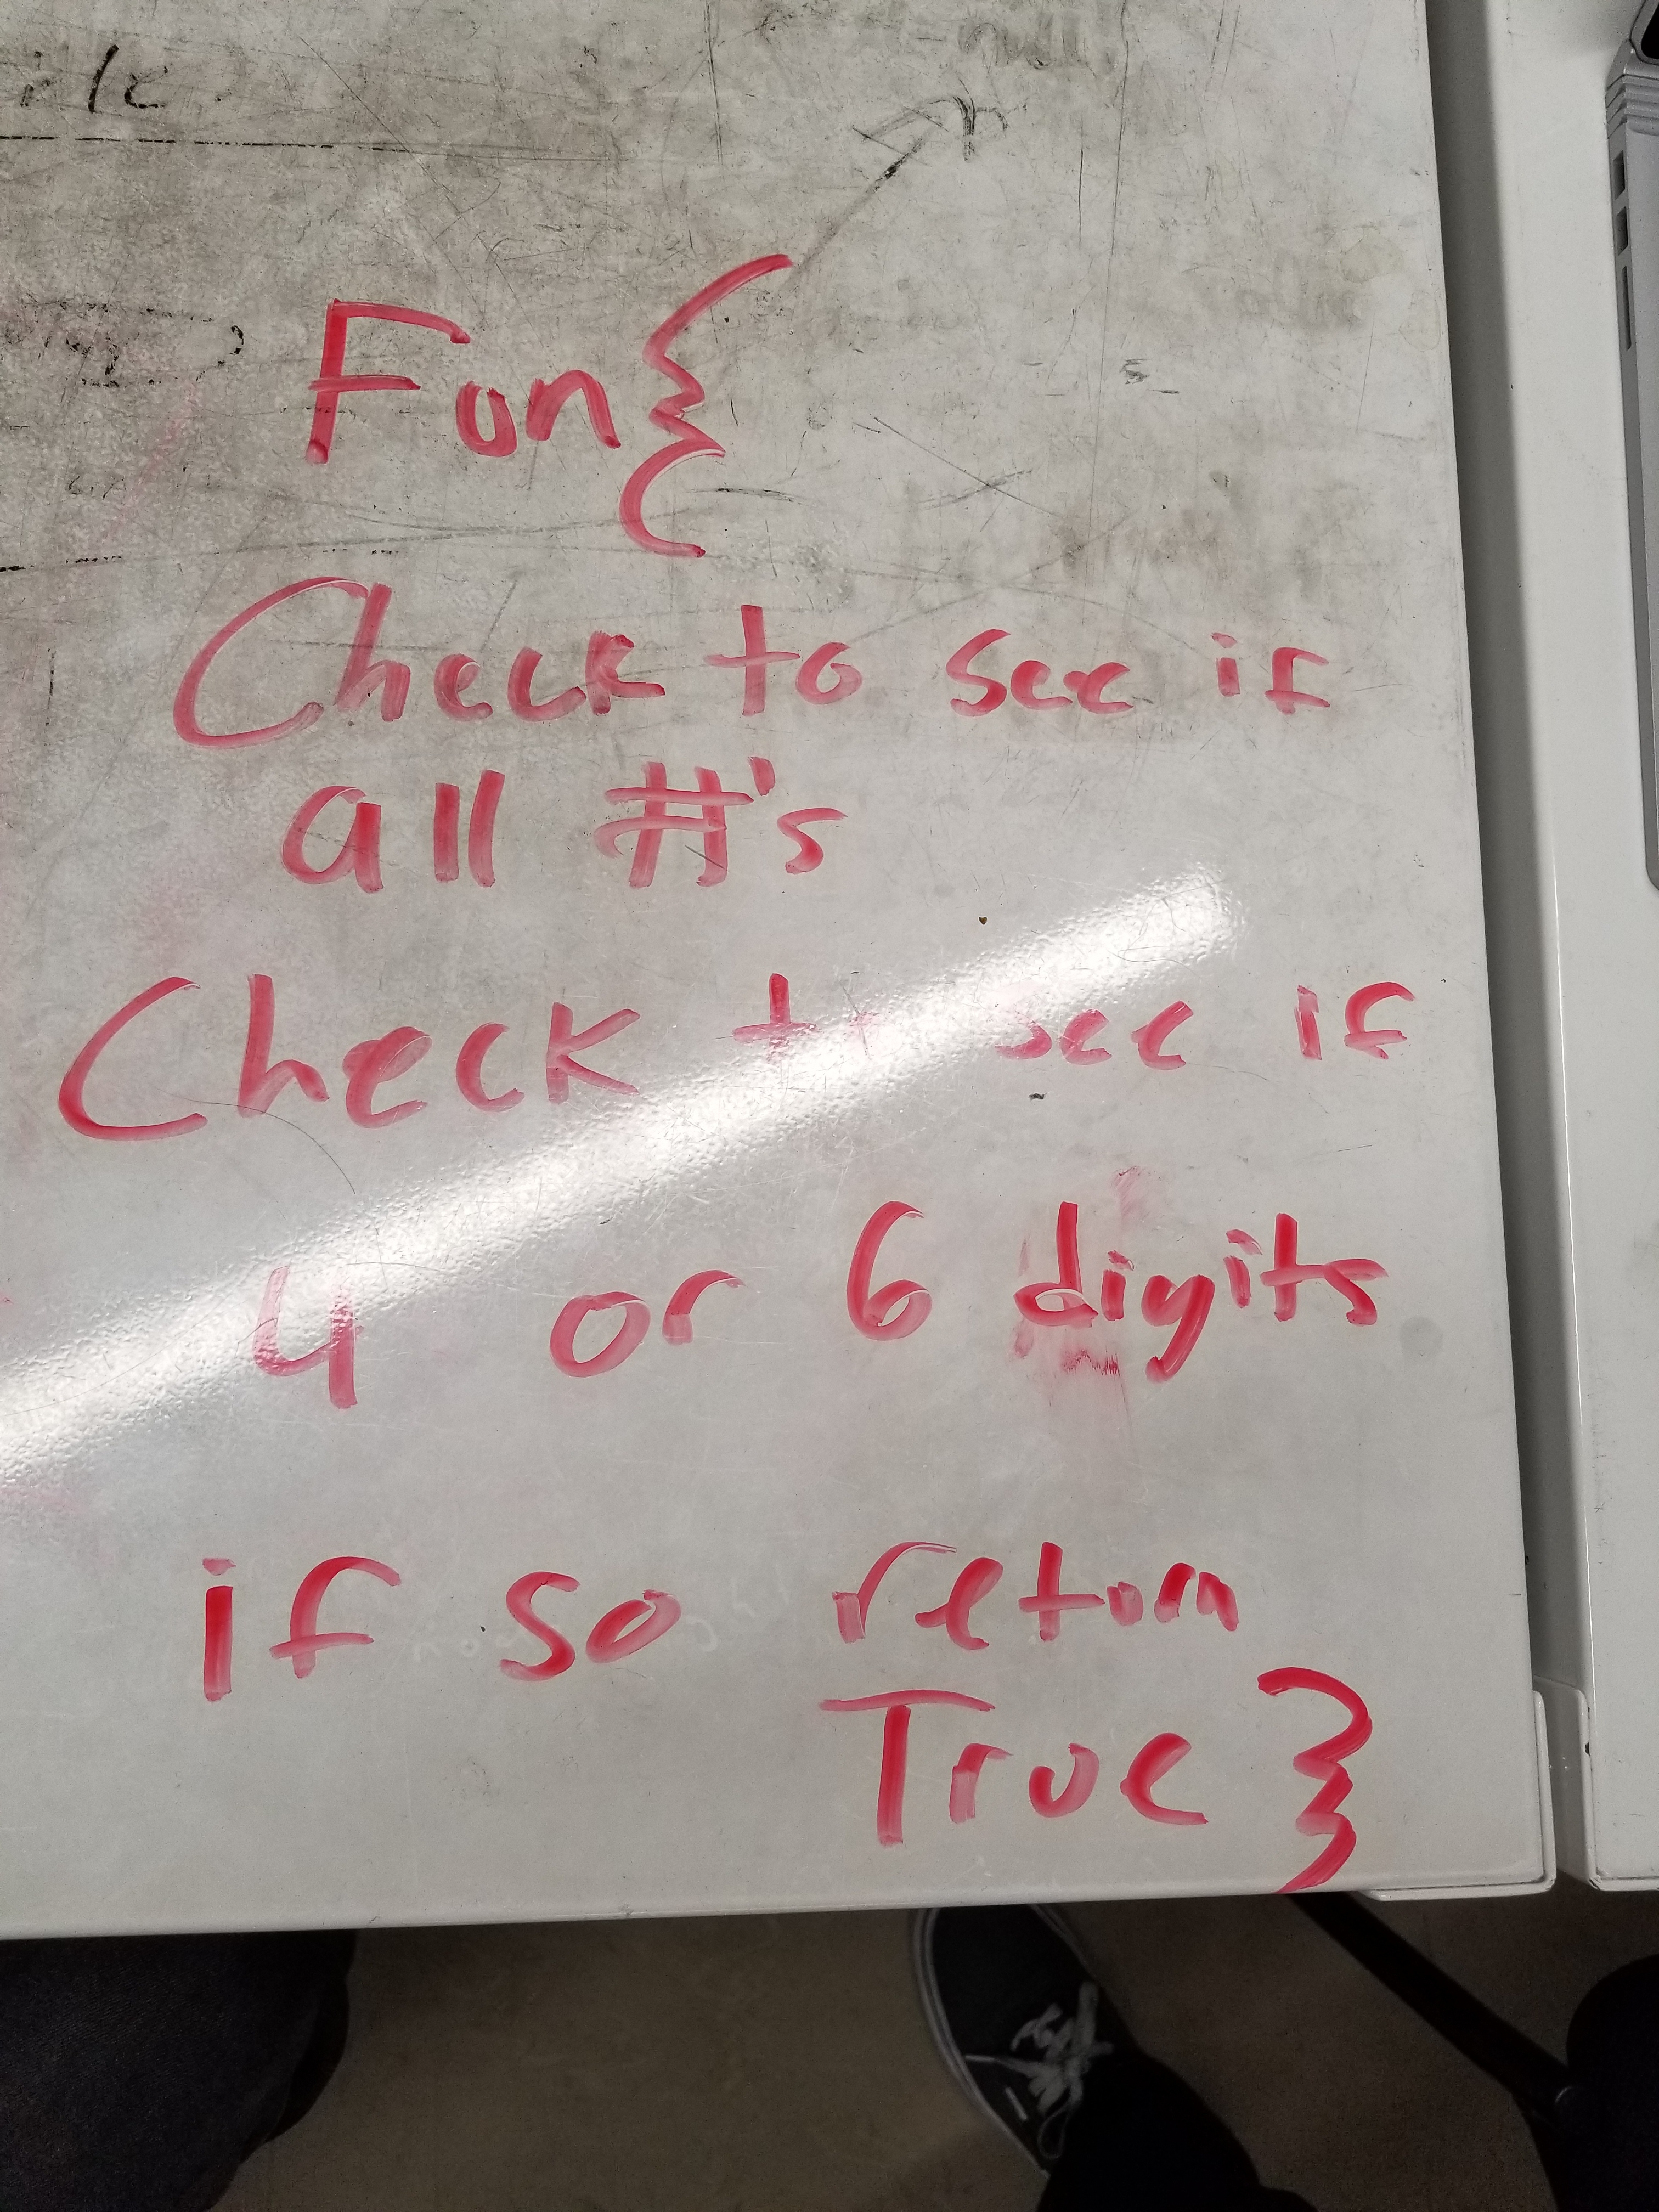 Fun{
Check to see if
all #'s
Check to see if
4 or 6 digits
if so return
True }